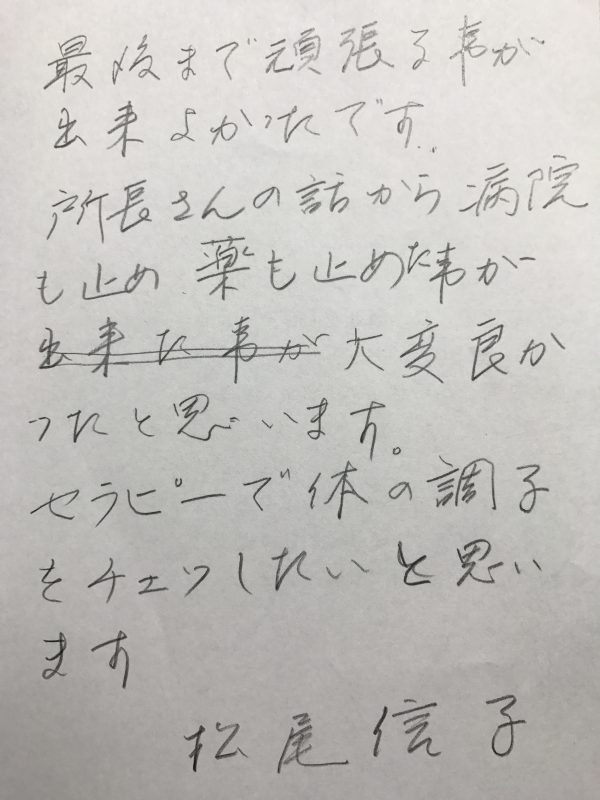 最後まで頑張る事が
出来よかったです。
所長さんの話から病院
も止め 薬も止めた事が
出来た事が大変良か
ったと思います。
セラピーで体の調子
をチェツしたいと思い
ます
松尾信子